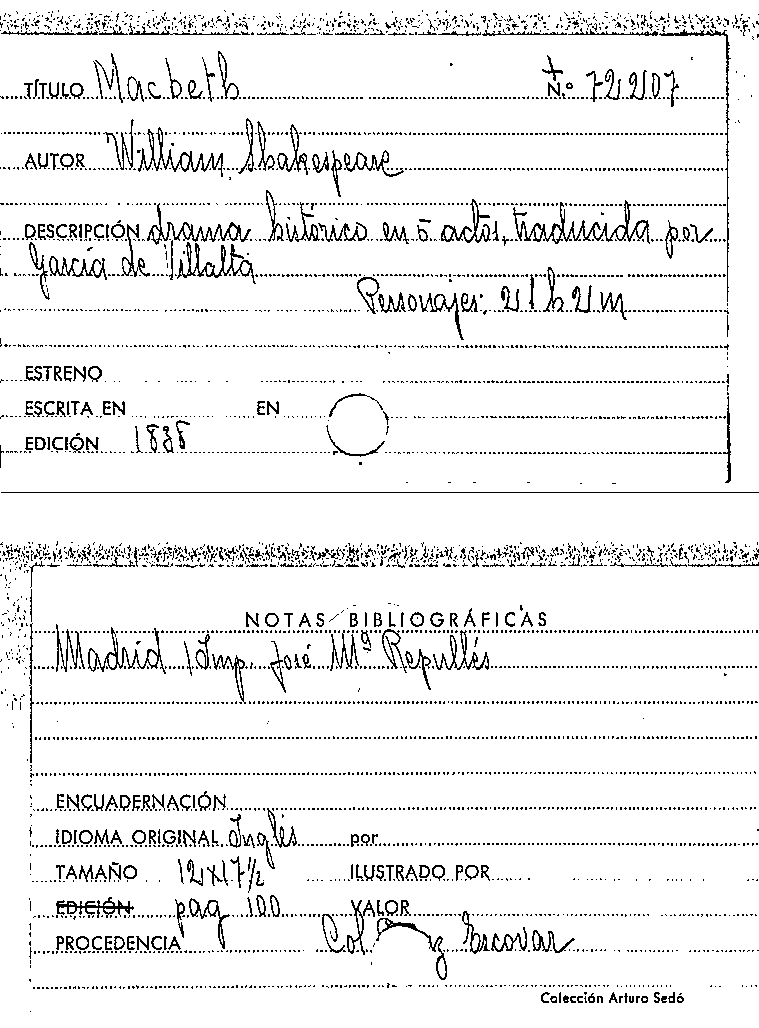 TÍTULO Macbeth N.º 72207
AUTOR William Shakespeare
DESCRIPCIÓN drama histórico en 5 actos, traducida por
García de Villalta
Personajes: 21 h 2 m
ESTRENO
ESCRITA EN EN
EDICIÓN 1838
NOTAS BIBLIOGRÁFICAS
Madrid / Imp. José Mª Repullés
ENCUADERNACIÓN
IDIOMA ORIGINAL Inglés por
TAMAÑO 12x17½ ILUSTRADO POR
EDICIÓN pag 100 VALOR
PROCEDENCIA Col. Escovar
Colección Arturo Sedó